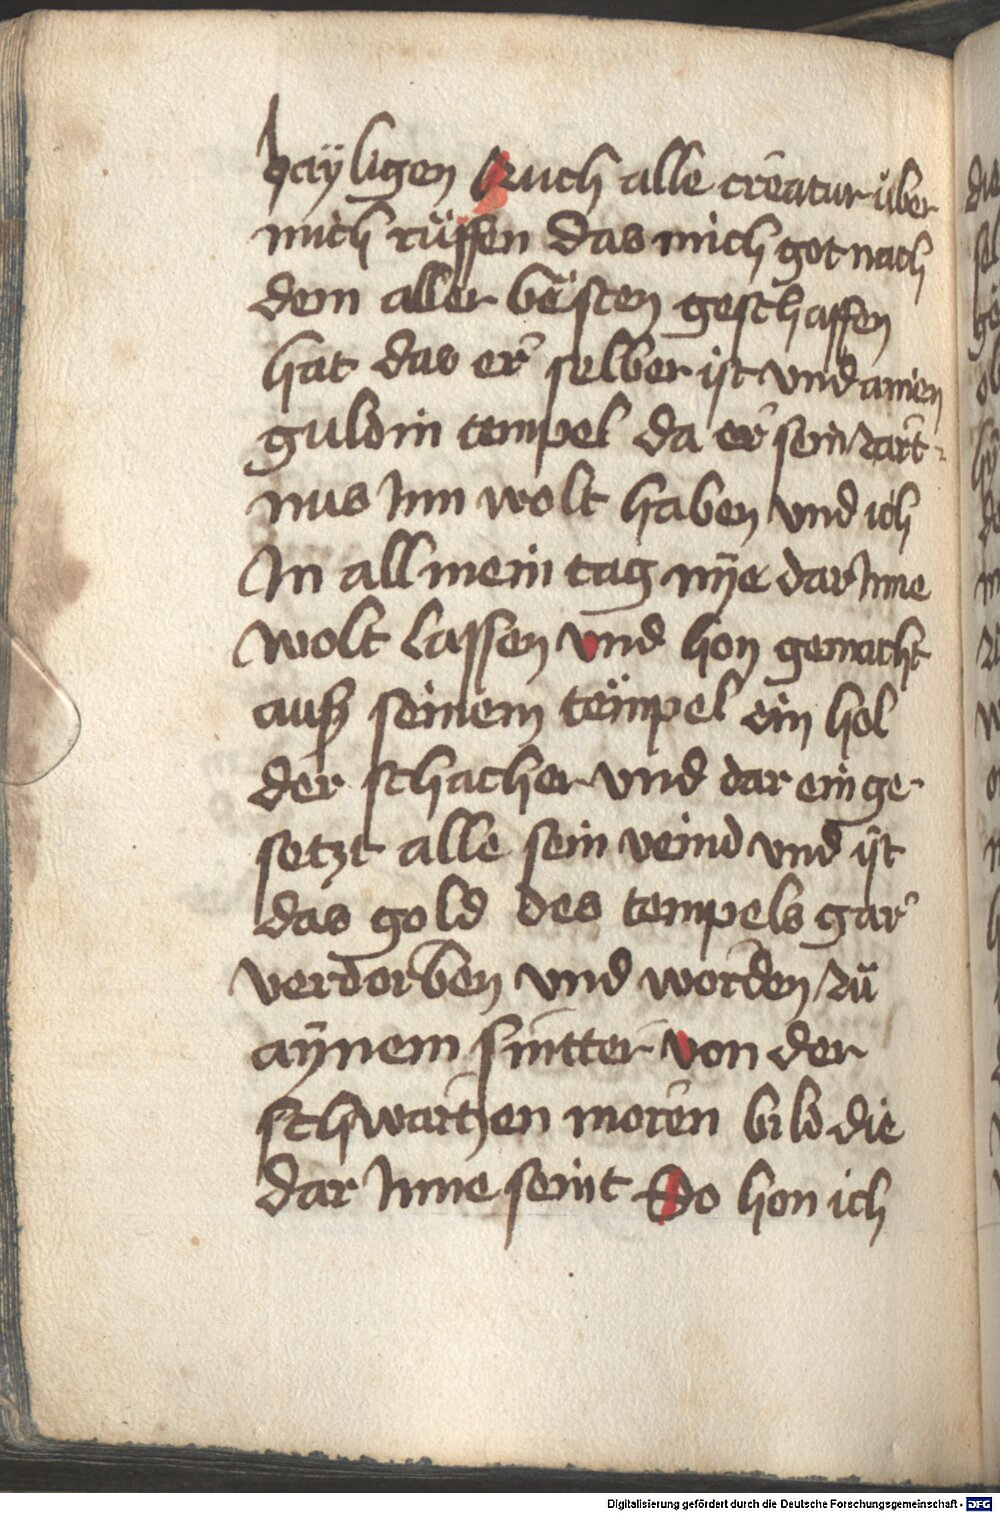 hayligen Auch alle creatur über
mich rüffen das mich got nach
dem aller besten geschaffen
hat das er selber ist und ainen
guldin tempel da er sein zart-
nus Inn wolt haben und ich
In all mein tag nÿe dar Inne
wolt lassen und hon gemacht
auß seinem tempel ein hol
der schacher und dar ein ge-
setzt alle sein veind und ist
das gold des tempels gar
verdorben und worden zü
aÿnem sintter von der
schwartzen moren bild die
dar Inne seint So hon ich
Digitalisierung gefördert durch die Deutsche Forschungsgemeinschaft - DFG